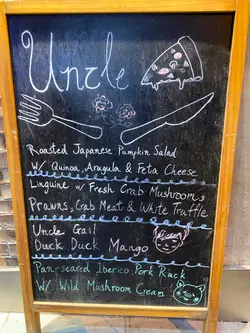 Uncle
Roasted Japanese Pumpkin Salad
W/ Quinoa, Arugula & Feta Cheese
Linguine w/ Fresh Crab Mushrooms,
Prawns, Crab Meat & White Truffle
Uncle Gail
Duck Duck Mango
Pan-seared Iberico Pork Rack
W/ Wild Mushroom Cream